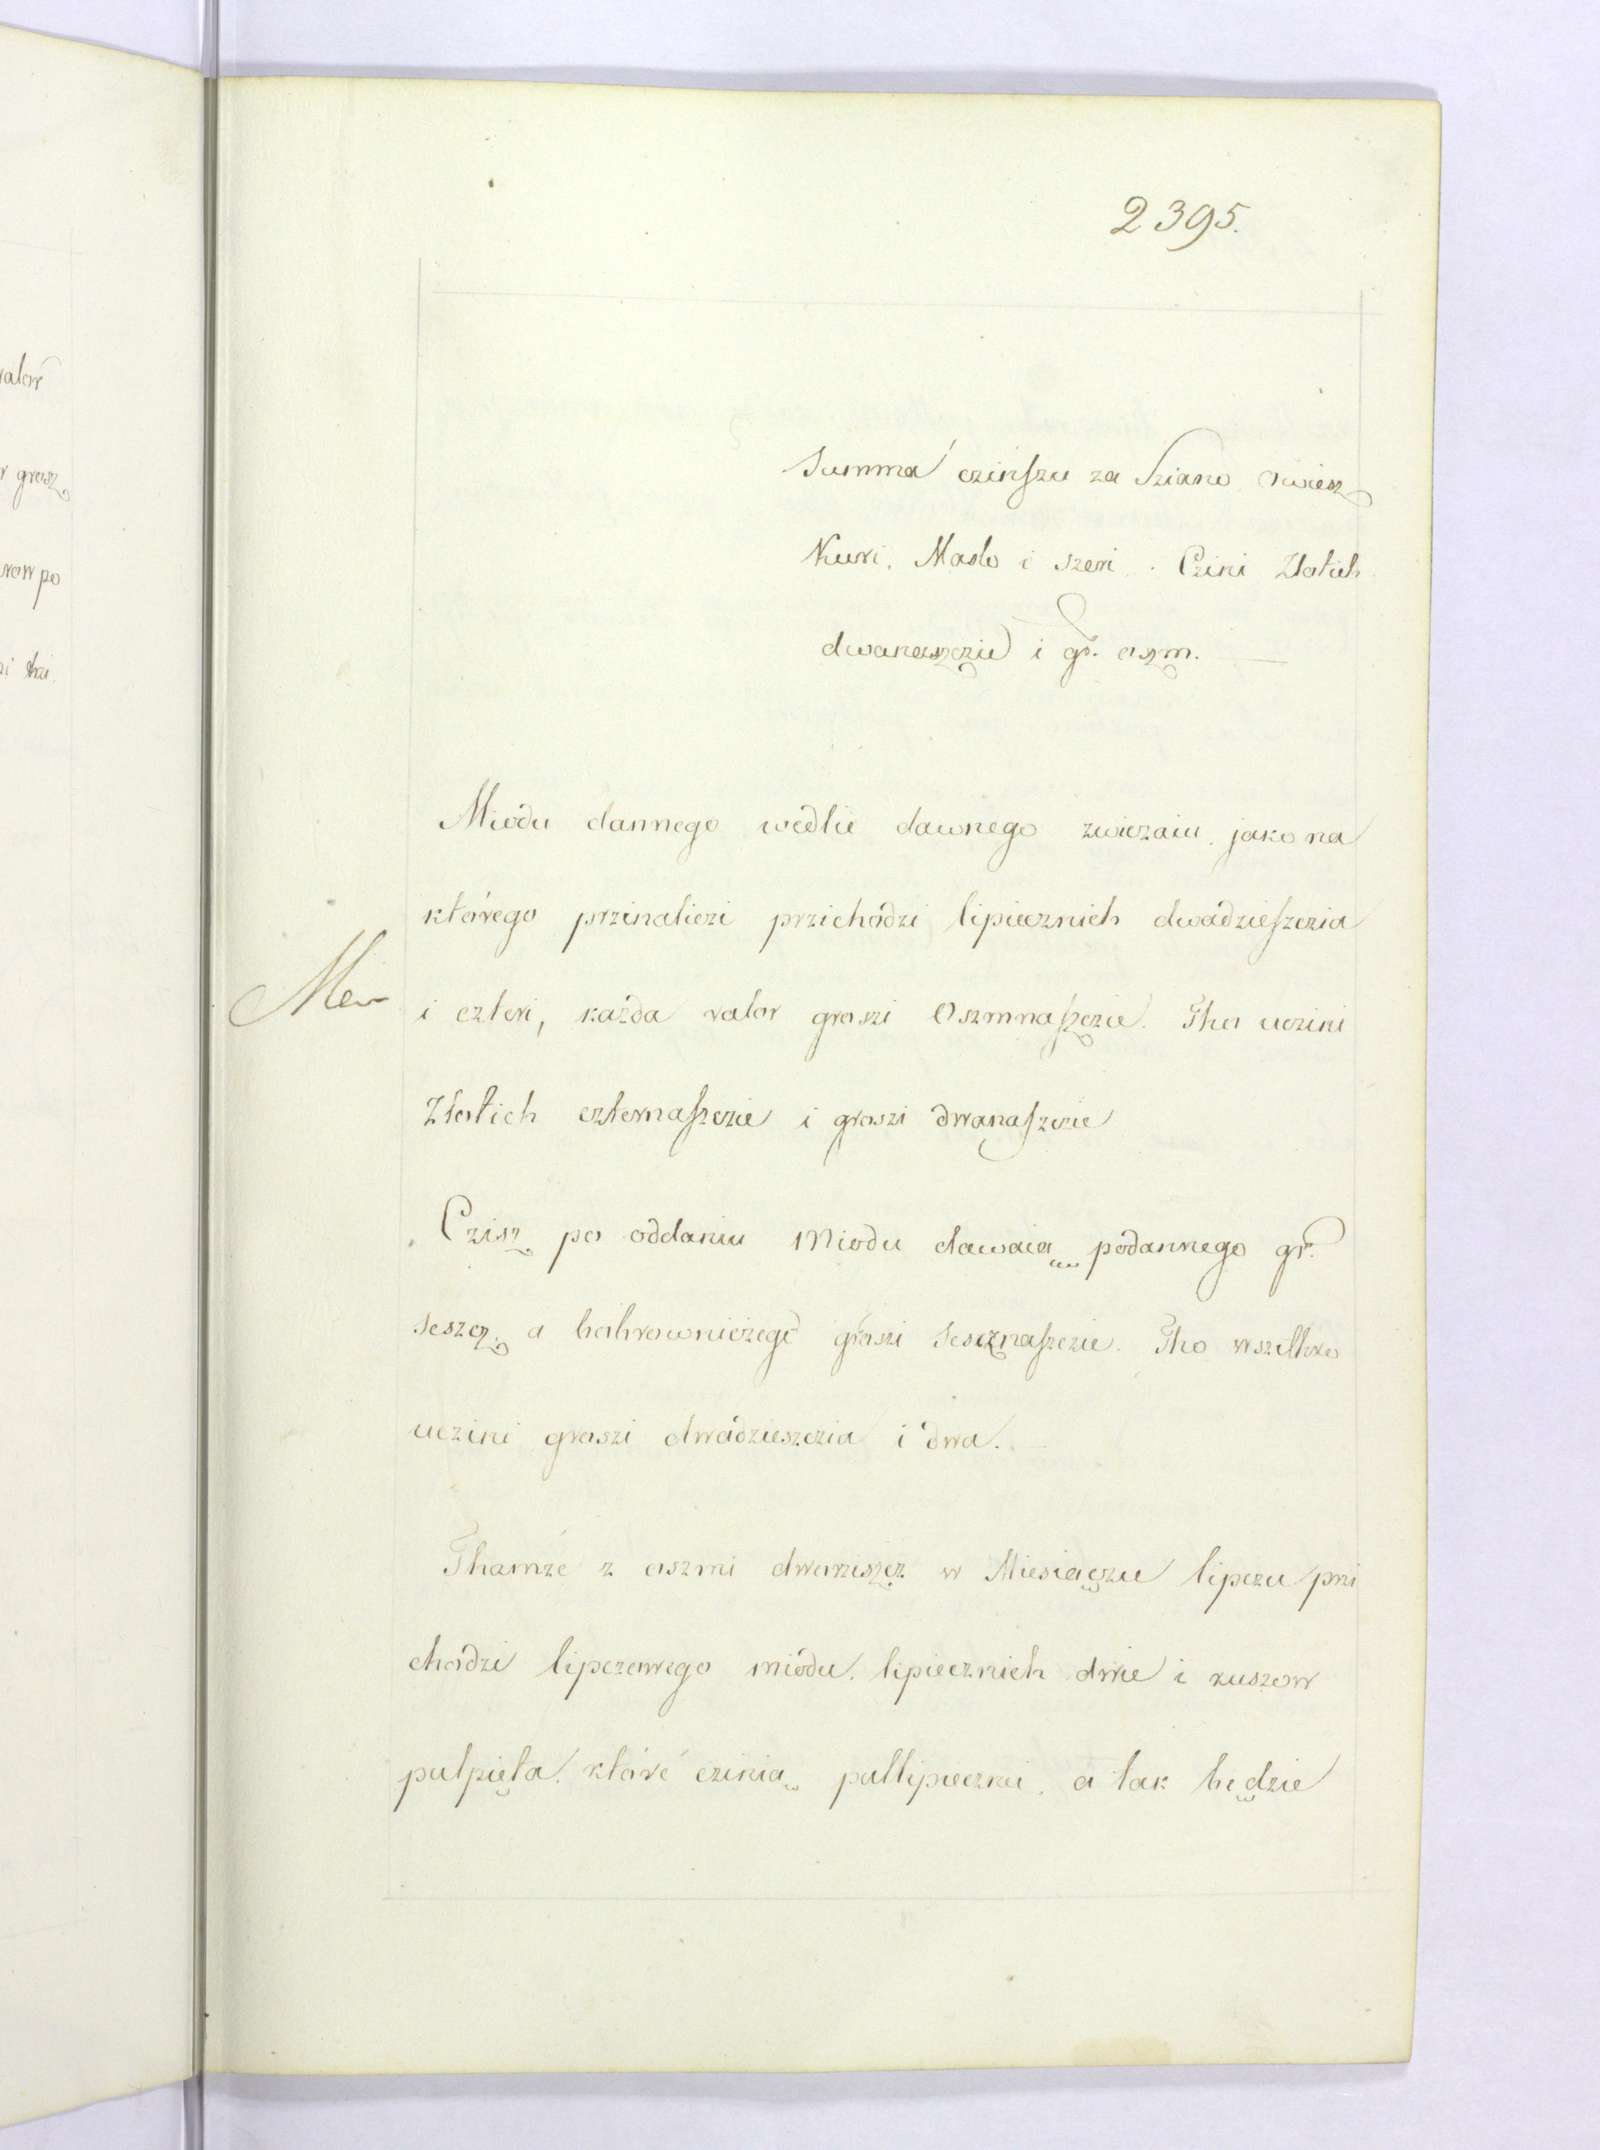 2395.
valor
grosz
row po
i trzi.
Summa czinſzu za Sziano, Owiesz
Kuri, Masło i szeri. Czini Złotich
dwanaszczie i gr. oszm.
Miodu dannego wedlie dawnego zwiczaiu, jako na
którego przinalieżi przichodzi lipiecznich dwadzieſzczia
Mer
i czteri, każda valor groszi Oszmnaſzczie. Tho uczini
Złotich czternaſzczie i groszi dwanaſzczie
Czisz po oddaniu Miodu dawaią podannego gr.
seszcz, a bobrowniczego groszi sescznaſzczie. Tho wszitko
uczini groszi dwadzieszczia i dwa.
Thamże z oszmi dworziszcz w Miesiączu lipczu przi
chodzi lipczowego miodu, lipiecznich dwie i kuszow
pulpięta, które czinią pullipieczki, a tak będzie